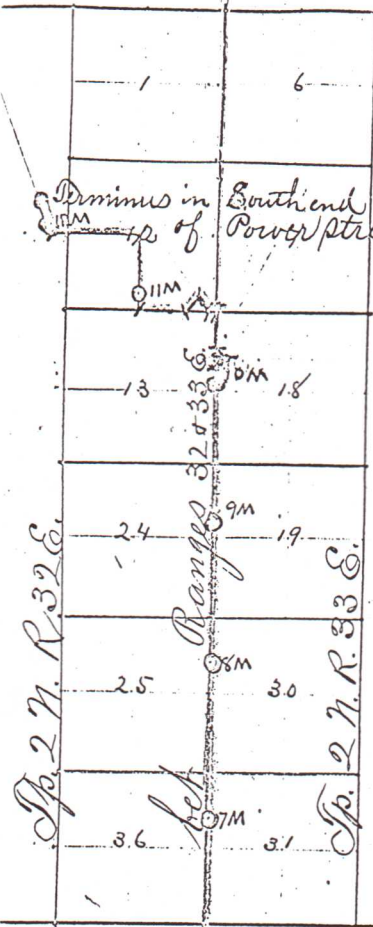 1 6
Terminus in South end
of Power Str
12M
12
11M
10M
13 18
9M
24 19
8M
25 30
7M
36 31
Tp. 2 N. R. 32 E.
bet Ranges 32 & 33 E.
Tp. 2 N. R. 33 E.